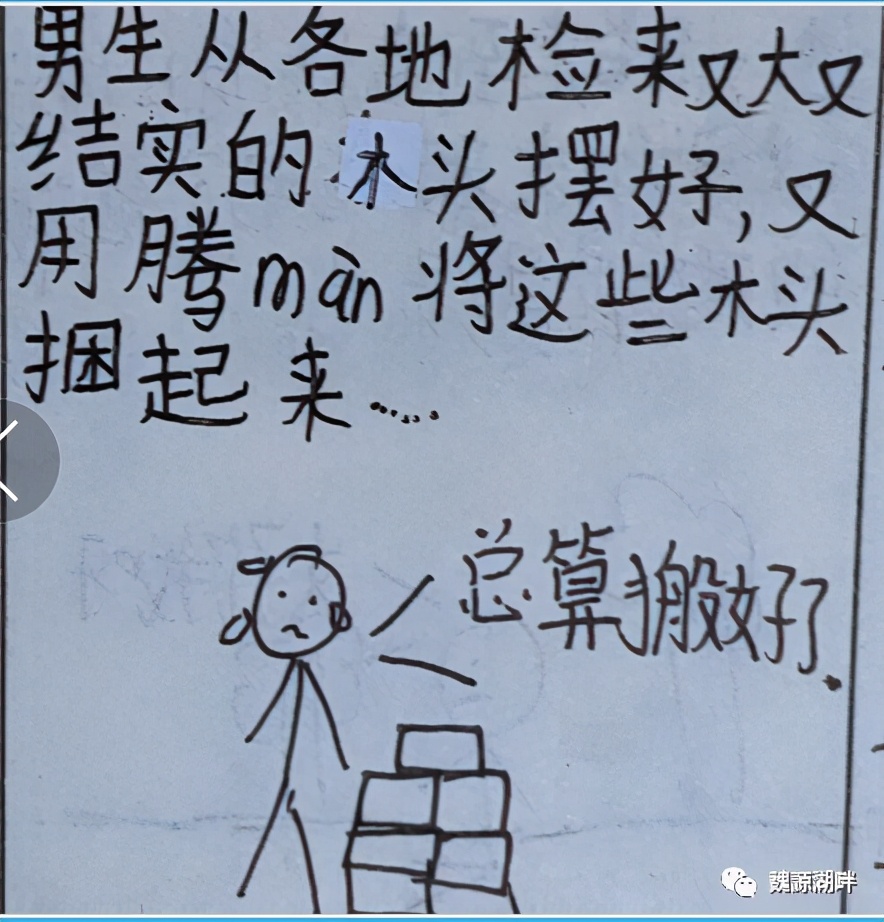 男生从各地检来又大又
结实的木头摆好,又
用腾màn将这些木头
捆起来……
总算搬好了.
魏源湖畔